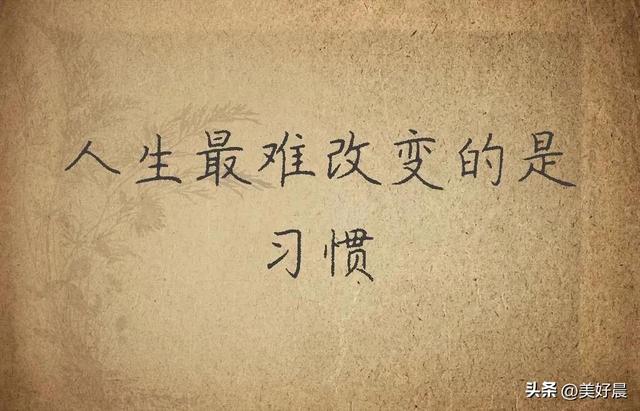 人生最难改变的是
习惯
头条 @美好晨